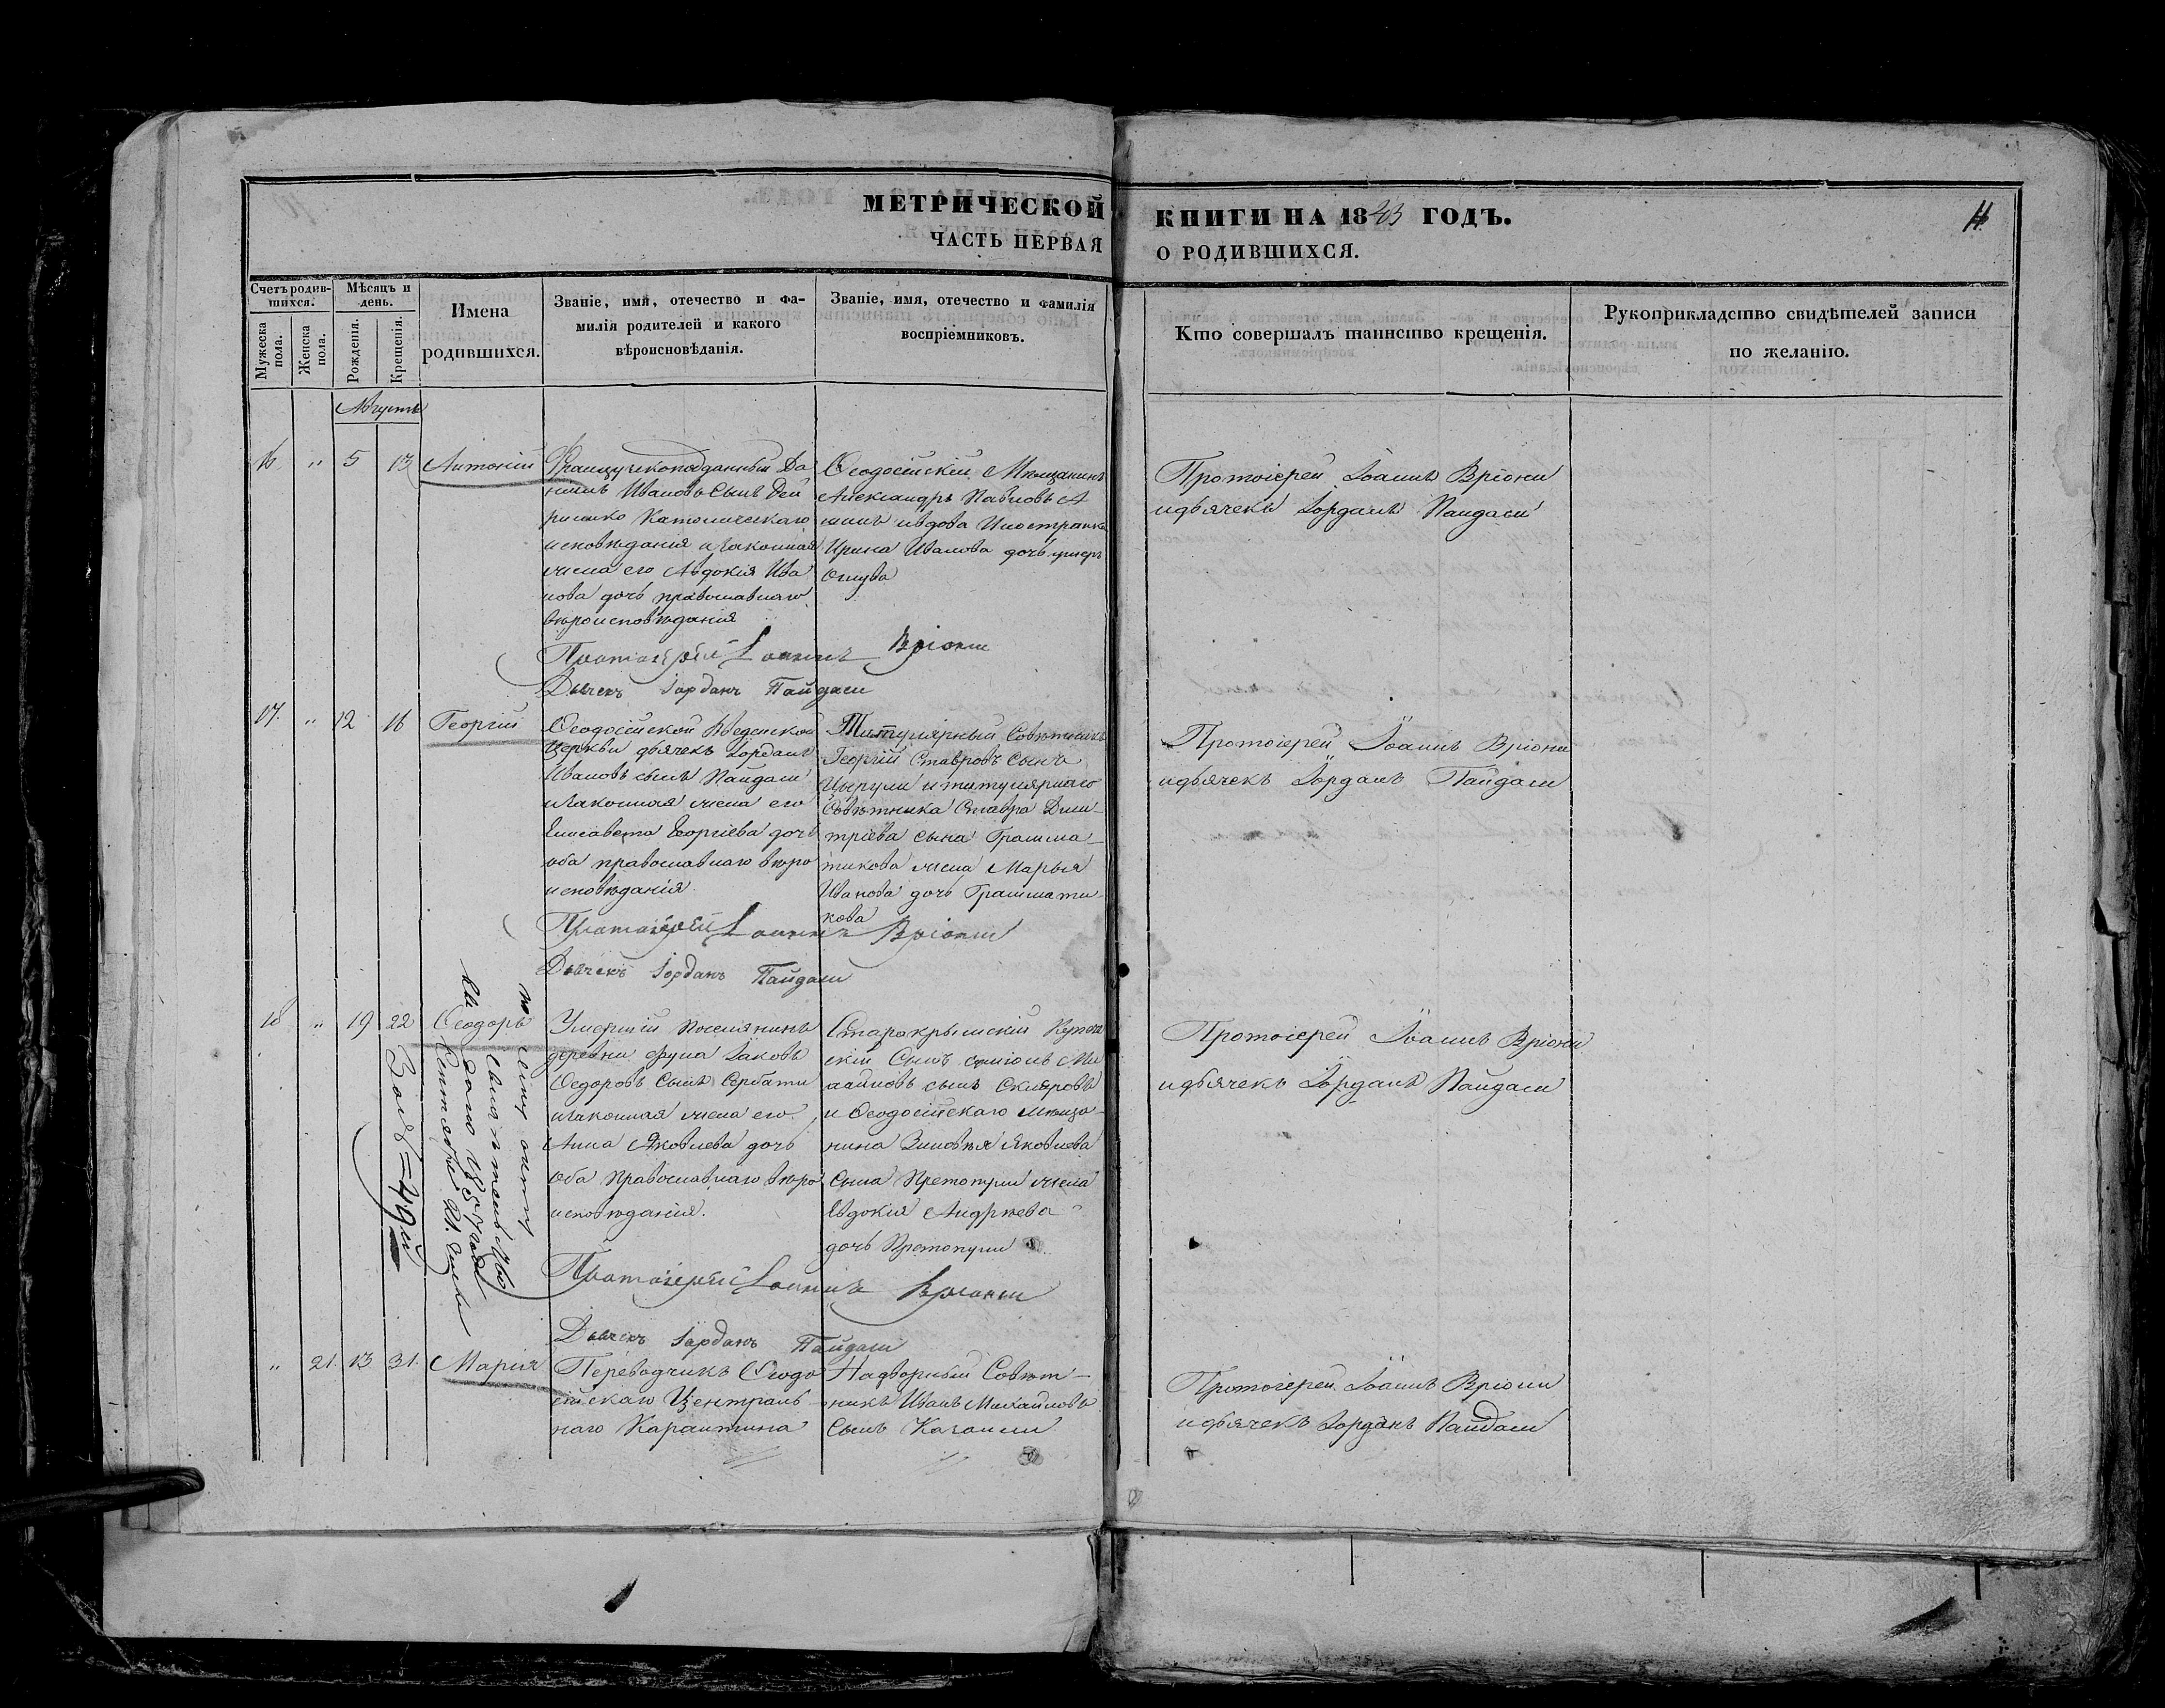 МЕТРИЧЕСКОЙ КНИГИ НА 1843 ГОДЪ.
ЧАСТЬ ПЕРВАЯ О РОДИВШИХСЯ.
Счетъ родив-
шихся.
Мужеска
пола.
Женска
пола.
Мѣсяцъ и
день.
Рожденія.
Крещенія.
Имена
родившихся.
Званіе, имя, отечество и фа-
милія родителей и какого
вѣроисповѣданія.
Званіе, имя, отечество и фамилія
воспріемниковъ.
Кто совершалъ таинство крещенія.
Рукоприкладство свидѣтелей записи
по желанію.
Августъ
16 " 5 13 Антоній
Французскоподданный Да
Ивановъ Сынъ
Католическаго
исповѣданія и законная
жена его Авдокія Ива
нова дочь православнаго
вѣроисповѣданія
Ѳеодосійскій Мѣщанинъ
Александръ Павловъ
вдова Иностранка
Ирина Иванова дочь
Протоіерей Іоаннъ Вріони
и дьячекъ Іорданъ Пайдаси
Протоіерей Іоаннъ Вріони
Дьячекъ Іорданъ Пайдаси
17. " 12 16 Георгій
Ѳеодосійской Введенской
Церкви дьячекъ Іорданъ
Ивановъ сынъ Пайдаси
и законная жена его
Елисавета Георгіева дочь
оба православнаго вѣро
исповѣданія
Титулярный Совѣтникъ
Георгій Ставровъ Сынъ
и титулярнаго
Совѣтника Ставра Дми-
тріева сына Грамма-
тикова жена Марья
Иванова дочь Граммати-
кова
Протоіерей Іоаннъ Вріони
и дьячекъ Іорданъ Пайдаси
Протоіерей Іоаннъ Вріони
Дьячекъ Іорданъ Пайдаси
18 " 19 22 Ѳеодоръ
Умершій поселянинъ
деревни Іаковъ
Ѳедоровъ Сынъ
и законная жена его
Анна Яковлева дочь
оба Православнаго вѣро
исповѣданія.
Старокрымскій
Сынъ
сынъ Скляровъ
и Ѳеодосійскаго мѣща-
нина Зиновья Яковлева
Сына жена
Евдокия Андреева
дочь
Протоіерей Іоаннъ Вріони
и дьячекъ Іорданъ Пайдаси
по сему
свидѣтельство
выдано
Сентября 21. дня
Протоіерей Іоаннъ Вріони
Дьячекъ Іорданъ Пайдаси
" 21. 13 31. Марія
Переводчикъ Ѳеодо
сійскаго Централь-
наго Карантина
Надворный Совѣт-
никъ Иванъ Михайловъ
Сынъ
Протоіерей Іоаннъ Вріони
и дьячекъ Іорданъ Пайдаси